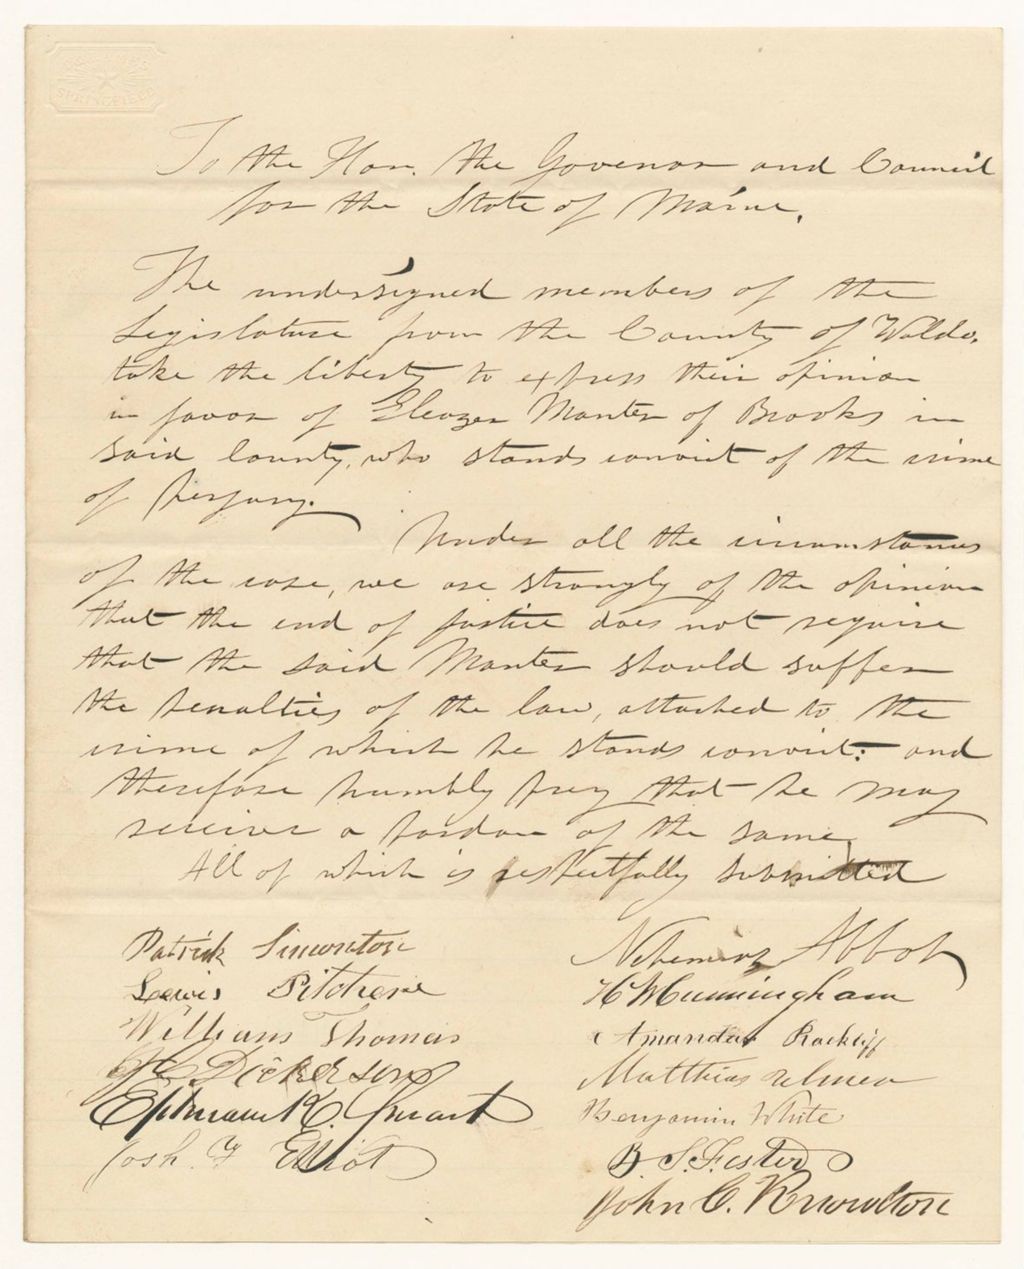 SPRINGFIELD
To the Hon. the Govenor and Council
for the State of Maine.
The undersigned members of the
Legislature from the County of Waldo,
take the liberty to express their opinion
in favor of Eleazer Manter of Brooks in
said County, who stands convict of the crime
of perjury.
Under all the circumstances
of the case, we are strongly of the opinion
that the end of justice does not require
that the said Manter should suffer
the penalties of the law, attached to the
crime of which he stands convict: and
therefore humbly pray that he may
receive a pardon of the same
All of which is respectfully submitted
Patrick Simonton
Nehemiah Abbot
Lewis Pitcher
H Cunningham
William Thomas
Amandar Rackliff
Dickerson
Matthias
Ephraim K. Smart
Benjamin White
Josh. Elliot
B S. Foster
John C. Knowlton